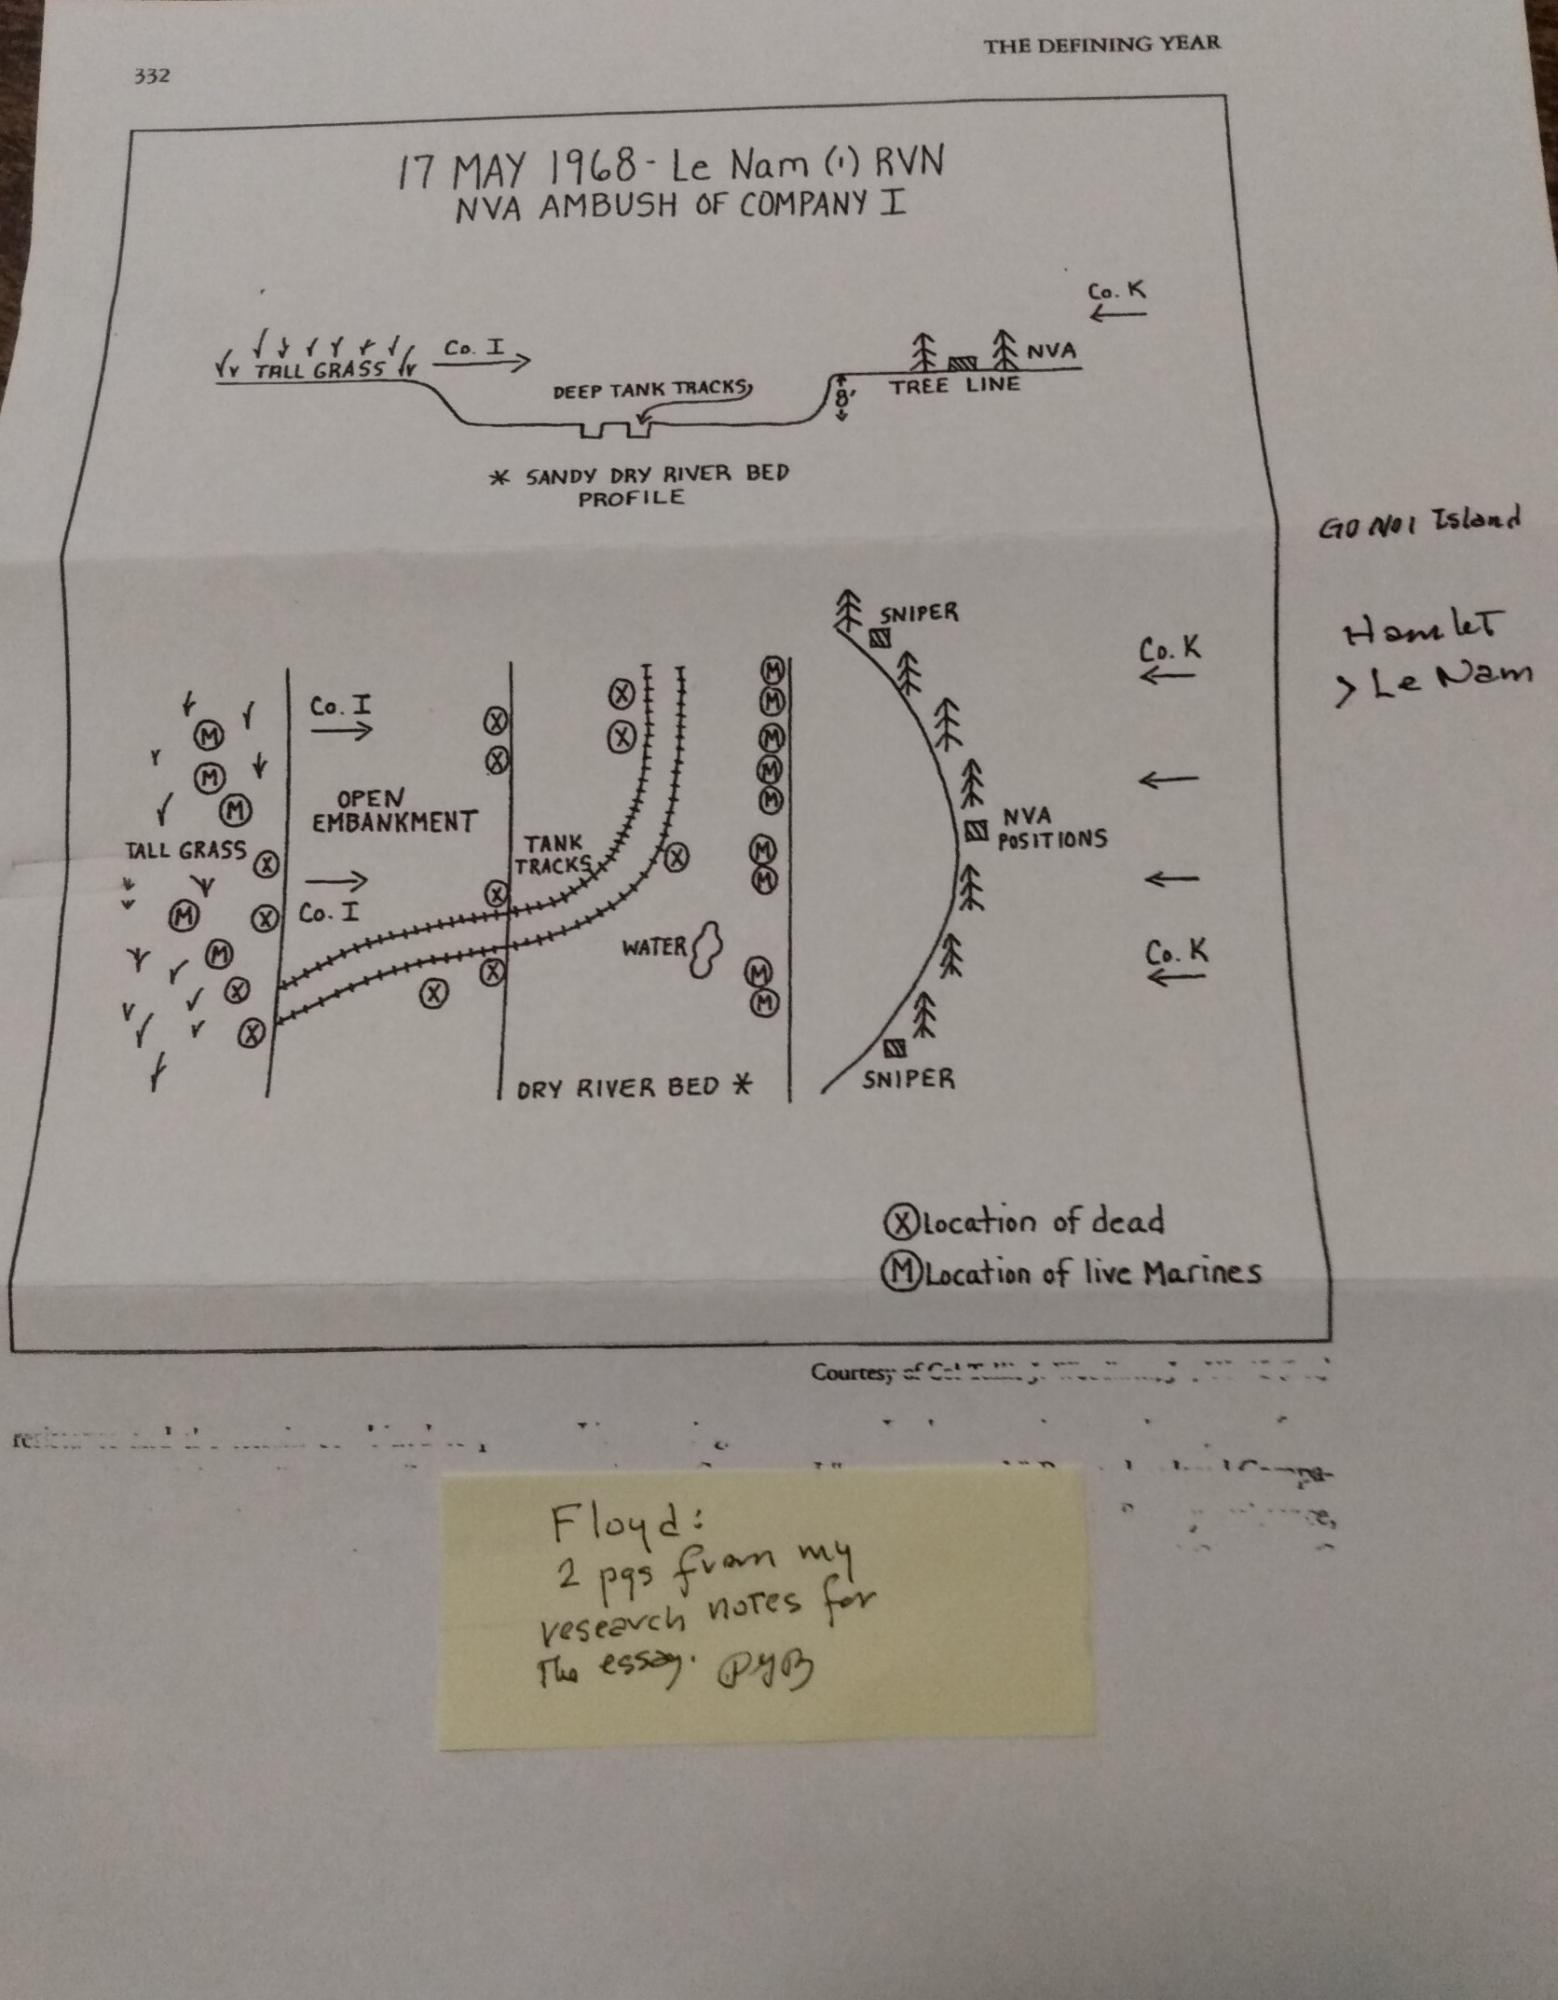 332
THE DEFINING YEAR
17 MAY 1968 - Le Nam (1) RVN
NVA AMBUSH OF COMPANY I
Co. K
TALL GRASS
Co. I
DEEP TANK TRACKS
8'
NVA
TREE LINE
* SANDY DRY RIVER BED
PROFILE
GO NOI Island
Hamlet
> Le Nam
SNIPER
Co. K
Co. I
M
M
M
X
X
X
X
M
M
M
M
M
OPEN
EMBANKMENT
TANK
TRACKS
NVA
POSITIONS
TALL GRASS
X
X
X
M
M
M
X
Co. I
M
M
X
X
X
X
WATER
M
M
Co. K
DRY RIVER BED *
SNIPER
X Location of dead
M Location of live Marines
Courtesy of Col
Floyd:
2 pgs from my
research notes for
The essay. PYB